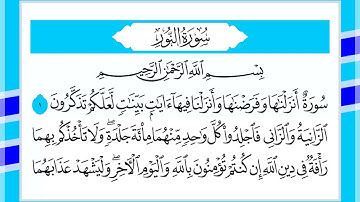 سُورَةُ النُّورِ
بِسْمِ اللَّهِ الرَّحْمَٰنِ الرَّحِيمِ
سُورَةٌ أَنزَلْنَٰهَا وَفَرَضْنَٰهَا وَأَنزَلْنَا فِيهَآ ءَايَٰتٍۭ بَيِّنَٰتٍ لَّعَلَّكُمْ تَذَكَّرُونَ ١
ٱلزَّانِيَةُ وَٱلزَّانِى فَٱجْلِدُوا۟ كُلَّ وَٰحِدٍ مِّنْهُمَا مِا۟ئَةَ جَلْدَةٍ ۖ وَلَا تَأْخُذْكُم بِهِمَا
رَأْفَةٌ فِى دِينِ ٱللَّهِ إِن كُنتُمْ تُؤْمِنُونَ بِٱللَّهِ وَٱلْيَوْمِ ٱلْءَاخِرِ ۖ وَلْيَشْهَدْ عَذَابَهُمَا